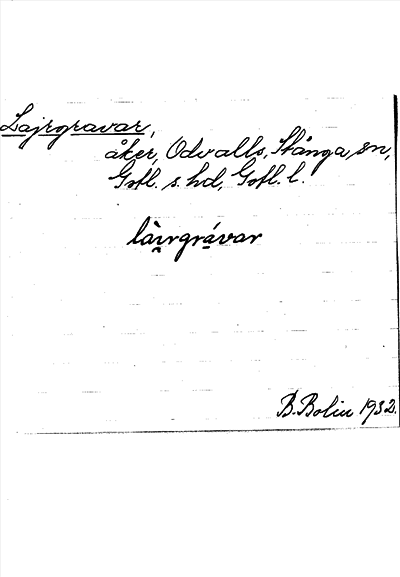 Lajrgravar,
åker, Odvalls, Stånga sn,
Gotl. s. hd, Gotl. l.
làı̯rgrávar
B. Bolin 1932.